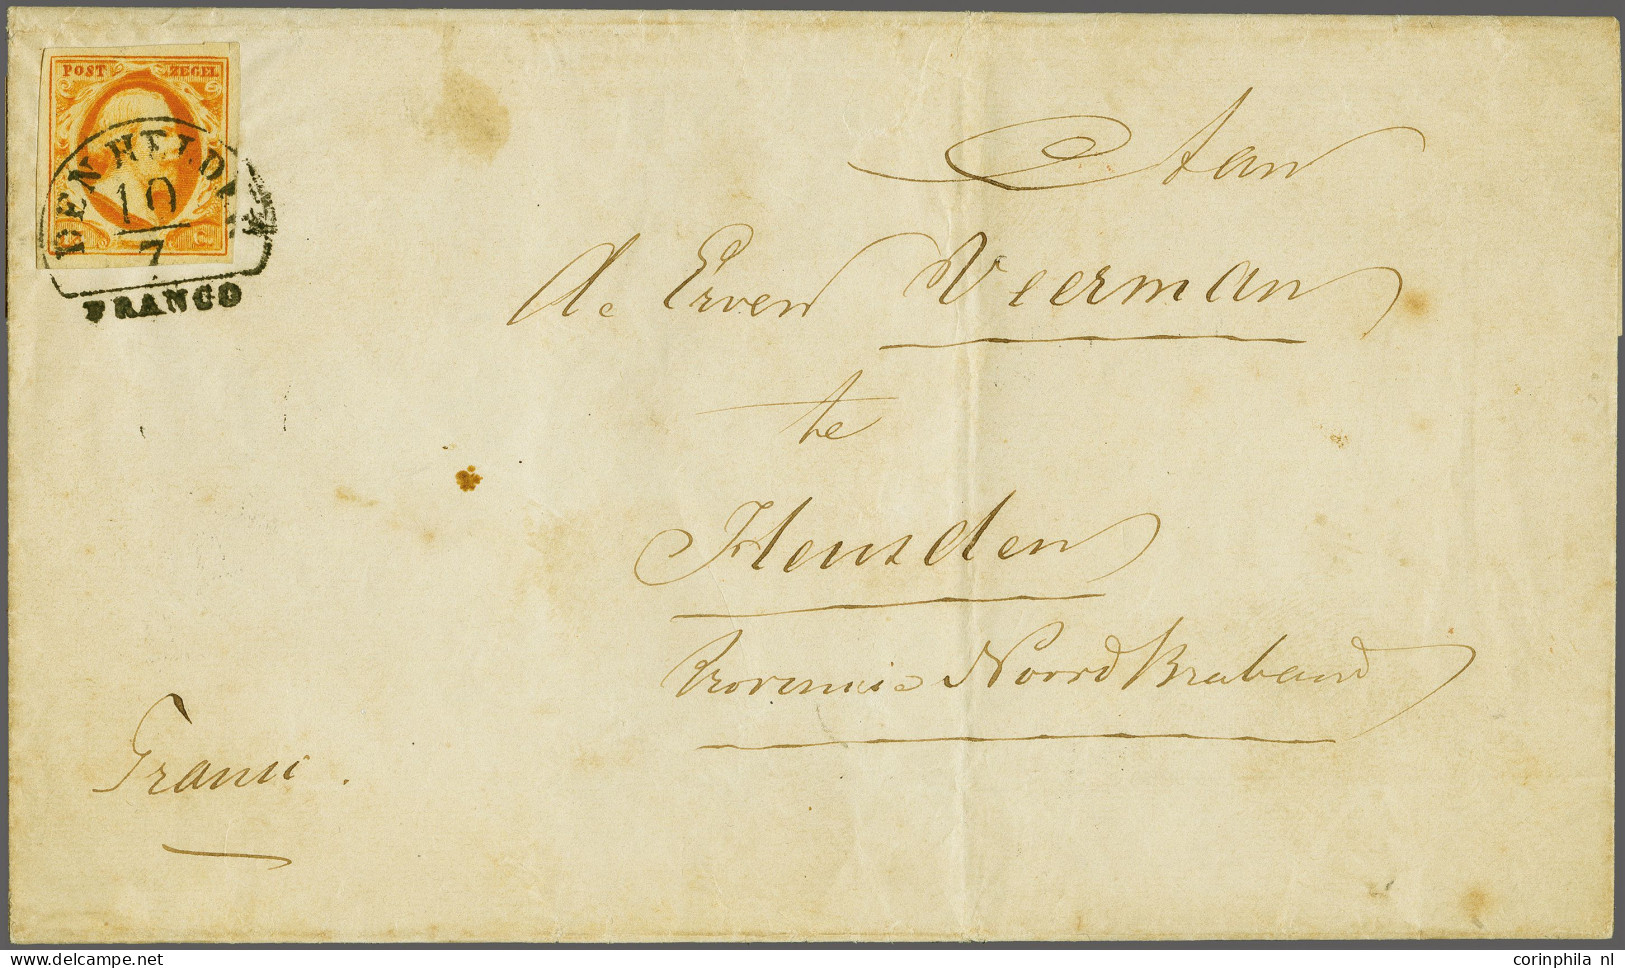 POST ZEGEL
DEN HELDER
10
7
FRANCO
Aan
de Erven Veerman
te
Heusden
Provincie Noord Braband
Franco.
corinphila nl